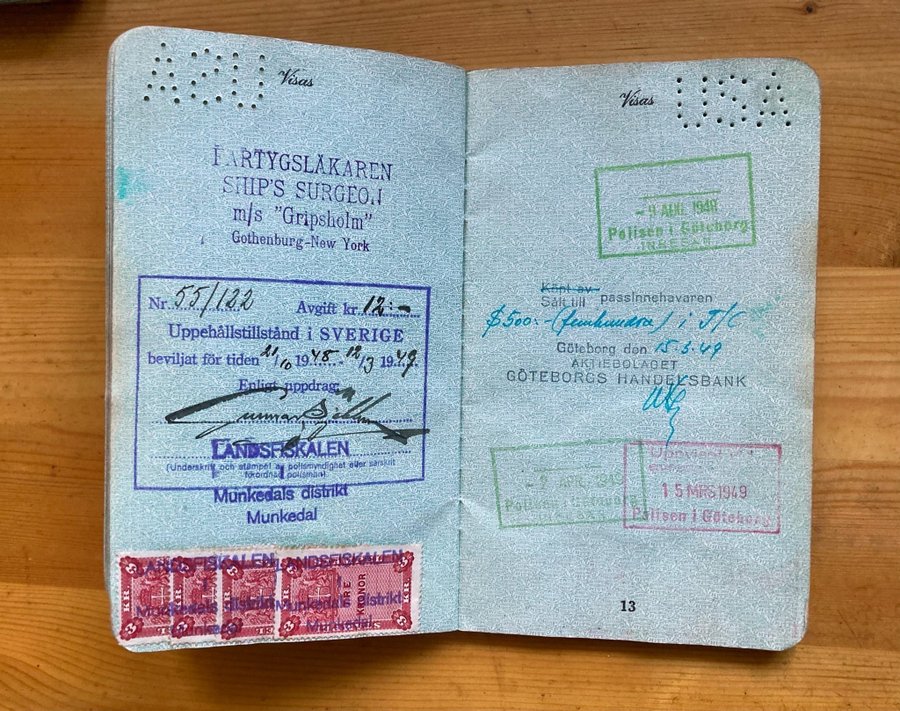 USA
Visas
FARTYGSLÄKAREN
SHIP'S SURGEON
m/s "Gripsholm"
Gothenburg-New York
Nr. 55/122 Avgift kr. 12:-
Uppehållstillstånd i SVERIGE
beviljat för tiden 21/10 1948 - 12/3 1949
Enligt uppdrag:
LANDSFISKALEN
(Underskrift och stämpel av polismyndighet eller särskilt
förordnad polisman)
i
Munkedals distrikt
Munkedal
LANDSFISKALEN LANDSFISKALEN
i i
Munkedals distrikt Munkedals distrikt
Munkedal Munkedal
KR. TRE KRONOR
Visas
USA
- 9 AUG. 1948
Polisen i Göteborg
INRESA
Köpt av
Sålt till passinnehavaren
$500.- (femhundra) i T/C
Göteborg den 15.3.49
AKTIEBOLAGET
GÖTEBORGS HANDELSBANK
APR. 1949
Polisen i Göteborg
Uppvisat vid
15 MRS 1949
Polisen i Göteborg
13